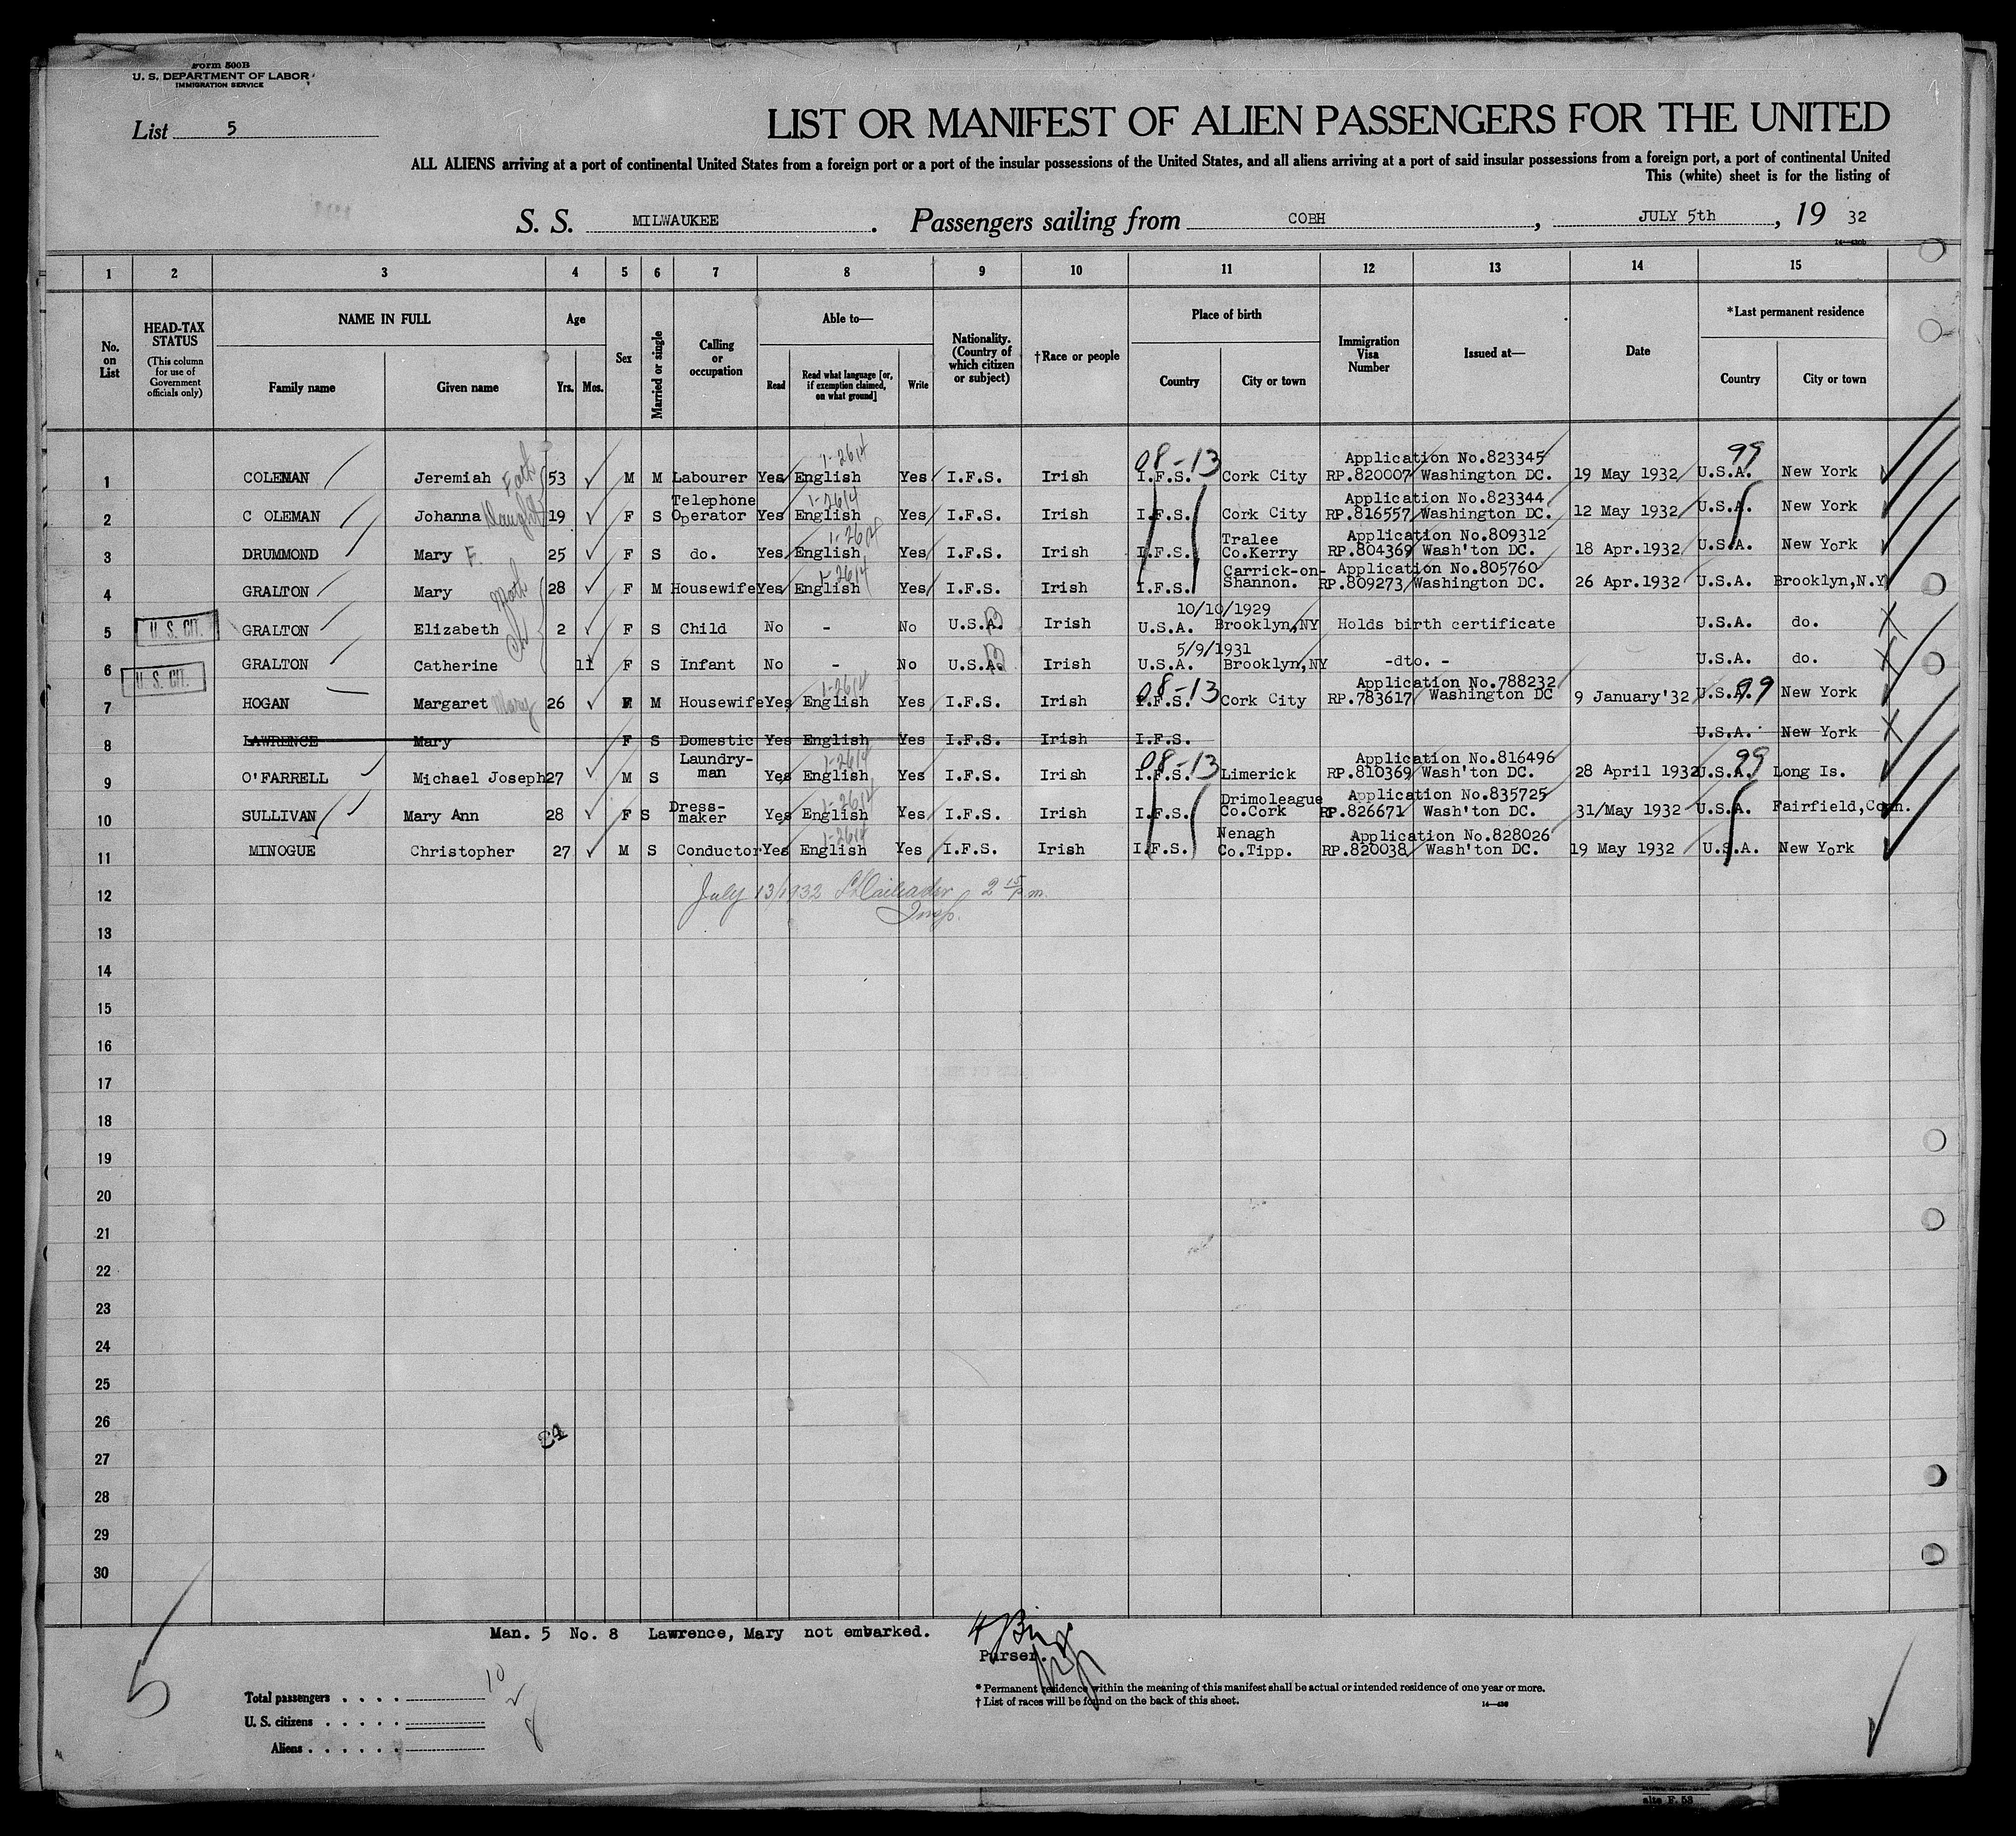 Form 500B
U. S. DEPARTMENT OF LABOR
IMMIGRATION SERVICE
List 5
LIST OR MANIFEST OF ALIEN PASSENGERS FOR THE UNITED
ALL ALIENS arriving at a port of continental United States from a foreign port or a port of the insular possessions of the United States, and all aliens arriving at a port of said insular possessions from a foreign port, a port of continental United
This (white) sheet is for the listing of
S. S. MILWAUKEE. Passengers sailing from COBH, JULY 5th, 19 32
1 2 3 4 5 6 7 8 9 10 11 12 13 14 15
No. on List
HEAD-TAX STATUS (This column for use of Government officials only)
NAME IN FULL Family name Given name
Age Yrs. Mos.
Sex
Married or single
Calling or occupation
Able to— Read Read what language [or, if exemption claimed, on what ground] Write
Nationality. (Country of which citizen or subject)
†Race or people
Place of birth Country City or town
Immigration Visa Number
Issued at—
Date
*Last permanent residence Country City or town
08-13 Application No.823345 99
1 COLEMAN Jeremiah Fath 53 M M Labourer Yes English 1-2614 Yes I.F.S. Irish I.F.S. Cork City RP.820007 Washington DC. 19 May 1932 U.S.A. New York
Telephone 1-2614 Application No.823344
2 C OLEMAN Johanna Daught 19 F S Operator Yes English Yes I.F.S. Irish I.F.S. Cork City RP.816557 Washington DC. 12 May 1932 U.S.A. New York
Tralee Application No.809312
3 DRUMMOND Mary F. 25 F S do. Yes English Yes I.F.S. Irish I.F.S. Co.Kerry RP.804369 Wash'ton DC. 18 Apr.1932 U.S.A. New York
1-2614 Carrick-on- Application No.805760
4 GRALTON Mary Moth 28 F M Housewife Yes English Yes I.F.S. Irish I.F.S. Shannon. RP.809273 Washington DC. 26 Apr.1932 U.S.A. Brooklyn,N.Y
10/10/1929
5 U. S. CIT. GRALTON Elizabeth 2 F S Child No - No U.S.A. Irish U.S.A. Brooklyn,NY Holds birth certificate U.S.A. do.
5/9/1931
6 U. S. CIT. GRALTON Catherine 11 F S Infant No - No U.S.A. Irish U.S.A. Brooklyn,NY -dto. - U.S.A. do.
1-2614 08-13 Application No.788232 99
7 HOGAN Margaret Mary 26 F M Housewife Yes English Yes I.F.S. Irish I.F.S. Cork City RP.783617 Washington DC 9 January'32 U.S.A. New York
8 LAWRENCE Mary F S Domestic Yes English Yes I.F.S. Irish I.F.S. U.S.A. New York
Laundry- 1-2614 08-13 Application No.816496 99
9 O'FARRELL Michael Joseph 27 M S man Yes English Yes I.F.S. Irish I.F.S. Limerick RP.810369 Wash'ton DC. 28 April 1932 U.S.A. Long Is.
Dress- 1-2614 Drimoleague Application No.835725
10 SULLIVAN Mary Ann 28 F S maker Yes English Yes I.F.S. Irish I.F.S. Co.Cork RP.826671 Wash'ton DC. 31/May 1932 U.S.A. Fairfield,Conn.
1-2614 Nenagh Application No.828026
11 MINOGUE Christopher 27 M S Conductor Yes English Yes I.F.S. Irish I.F.S. Co.Tipp. RP.820038 Wash'ton DC. 19 May 1932 U.S.A. New York
12 July 13/1932 2 15 p.m.
Insp.
13
14
15
16
17
18
19
20
21
22
23
24
25
26
27
28
29
30
Man. 5 No. 8 Lawrence, Mary not embarked.
Purser.
5
Total passengers . . . . 10
U. S. citizens . . . . . 2
Aliens . . . . . . 8
* Permanent residence within the meaning of this manifest shall be actual or intended residence of one year or more.
† List of races will be found on the back of this sheet.